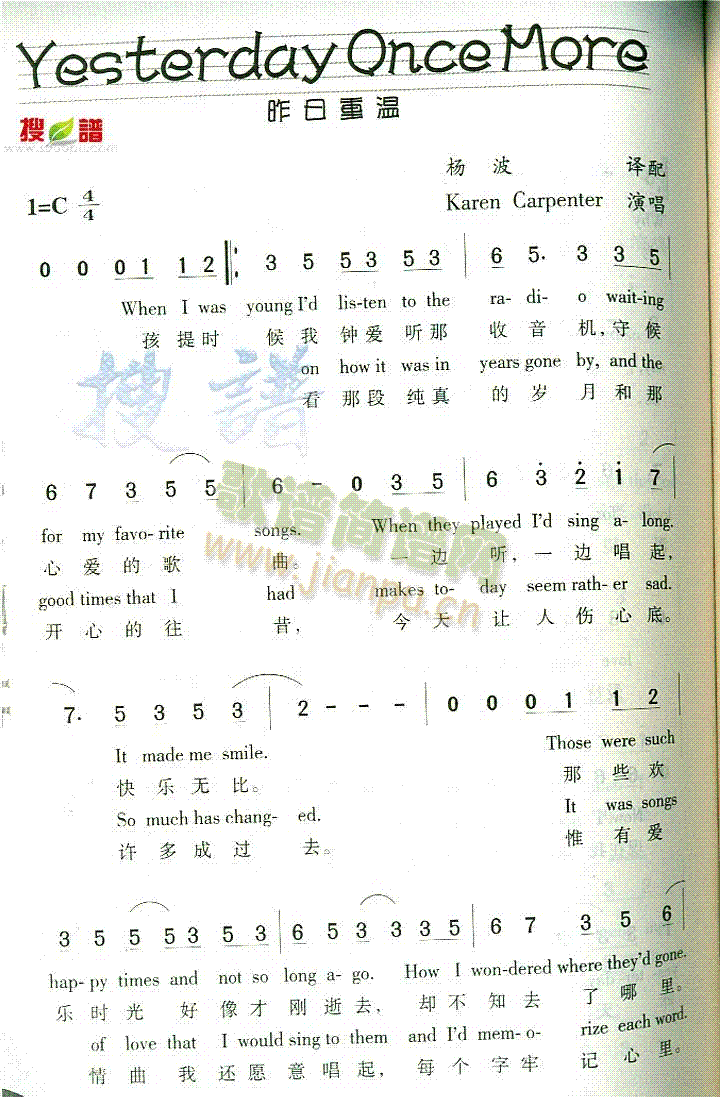 Yesterday Once More
昨日重温
搜谱
杨 波 译配
1=C 4/4
Karen Carpenter 演唱
0 0 0 1 1 2 3 5 5 3 5 3 6 5. 3 3 5
When I was young I'd lis-ten to the ra- di- o wait-ing
孩 提 时 候 我 钟 爱 听 那 收 音 机, 守 候
on how it was in years gone by, and the
看 那 段 纯 真 的 岁 月 和 那
搜 谱
6 7 3 5 5 6 - 0 3 5 6 3 2 1 7
歌谱简谱网
for my favo- rite songs. When they played I'd sing a- long.
心 爱 的 歌 曲。 一 边 听, 一 边 唱 起,
www.jianpu.cn
good times that I had makes to- day seem rath- er sad.
开 心 的 往 昔, 今 天 让 人 伤 心 底。
7. 5 3 5 3 2 - - - 0 0 0 1 1 2
It made me smile. Those were such
快 乐 无 比。 那 些 欢
So much has chang- ed. It was songs
许 多 成 过 去。 惟 有 爱
3 5 5 5 3 5 3 6 5 3 3 3 5 6 7 3 5 6
hap- py times and not so long a- go. How I won-dered where they'd gone.
乐 时 光 好 像 才 刚 逝 去, 却 不 知 去 了 哪 里。
of love that I would sing to them and I'd mem- o- rize each word.
情 曲 我 还 愿 意 唱 起, 每 个 字 牢 记 心 里。